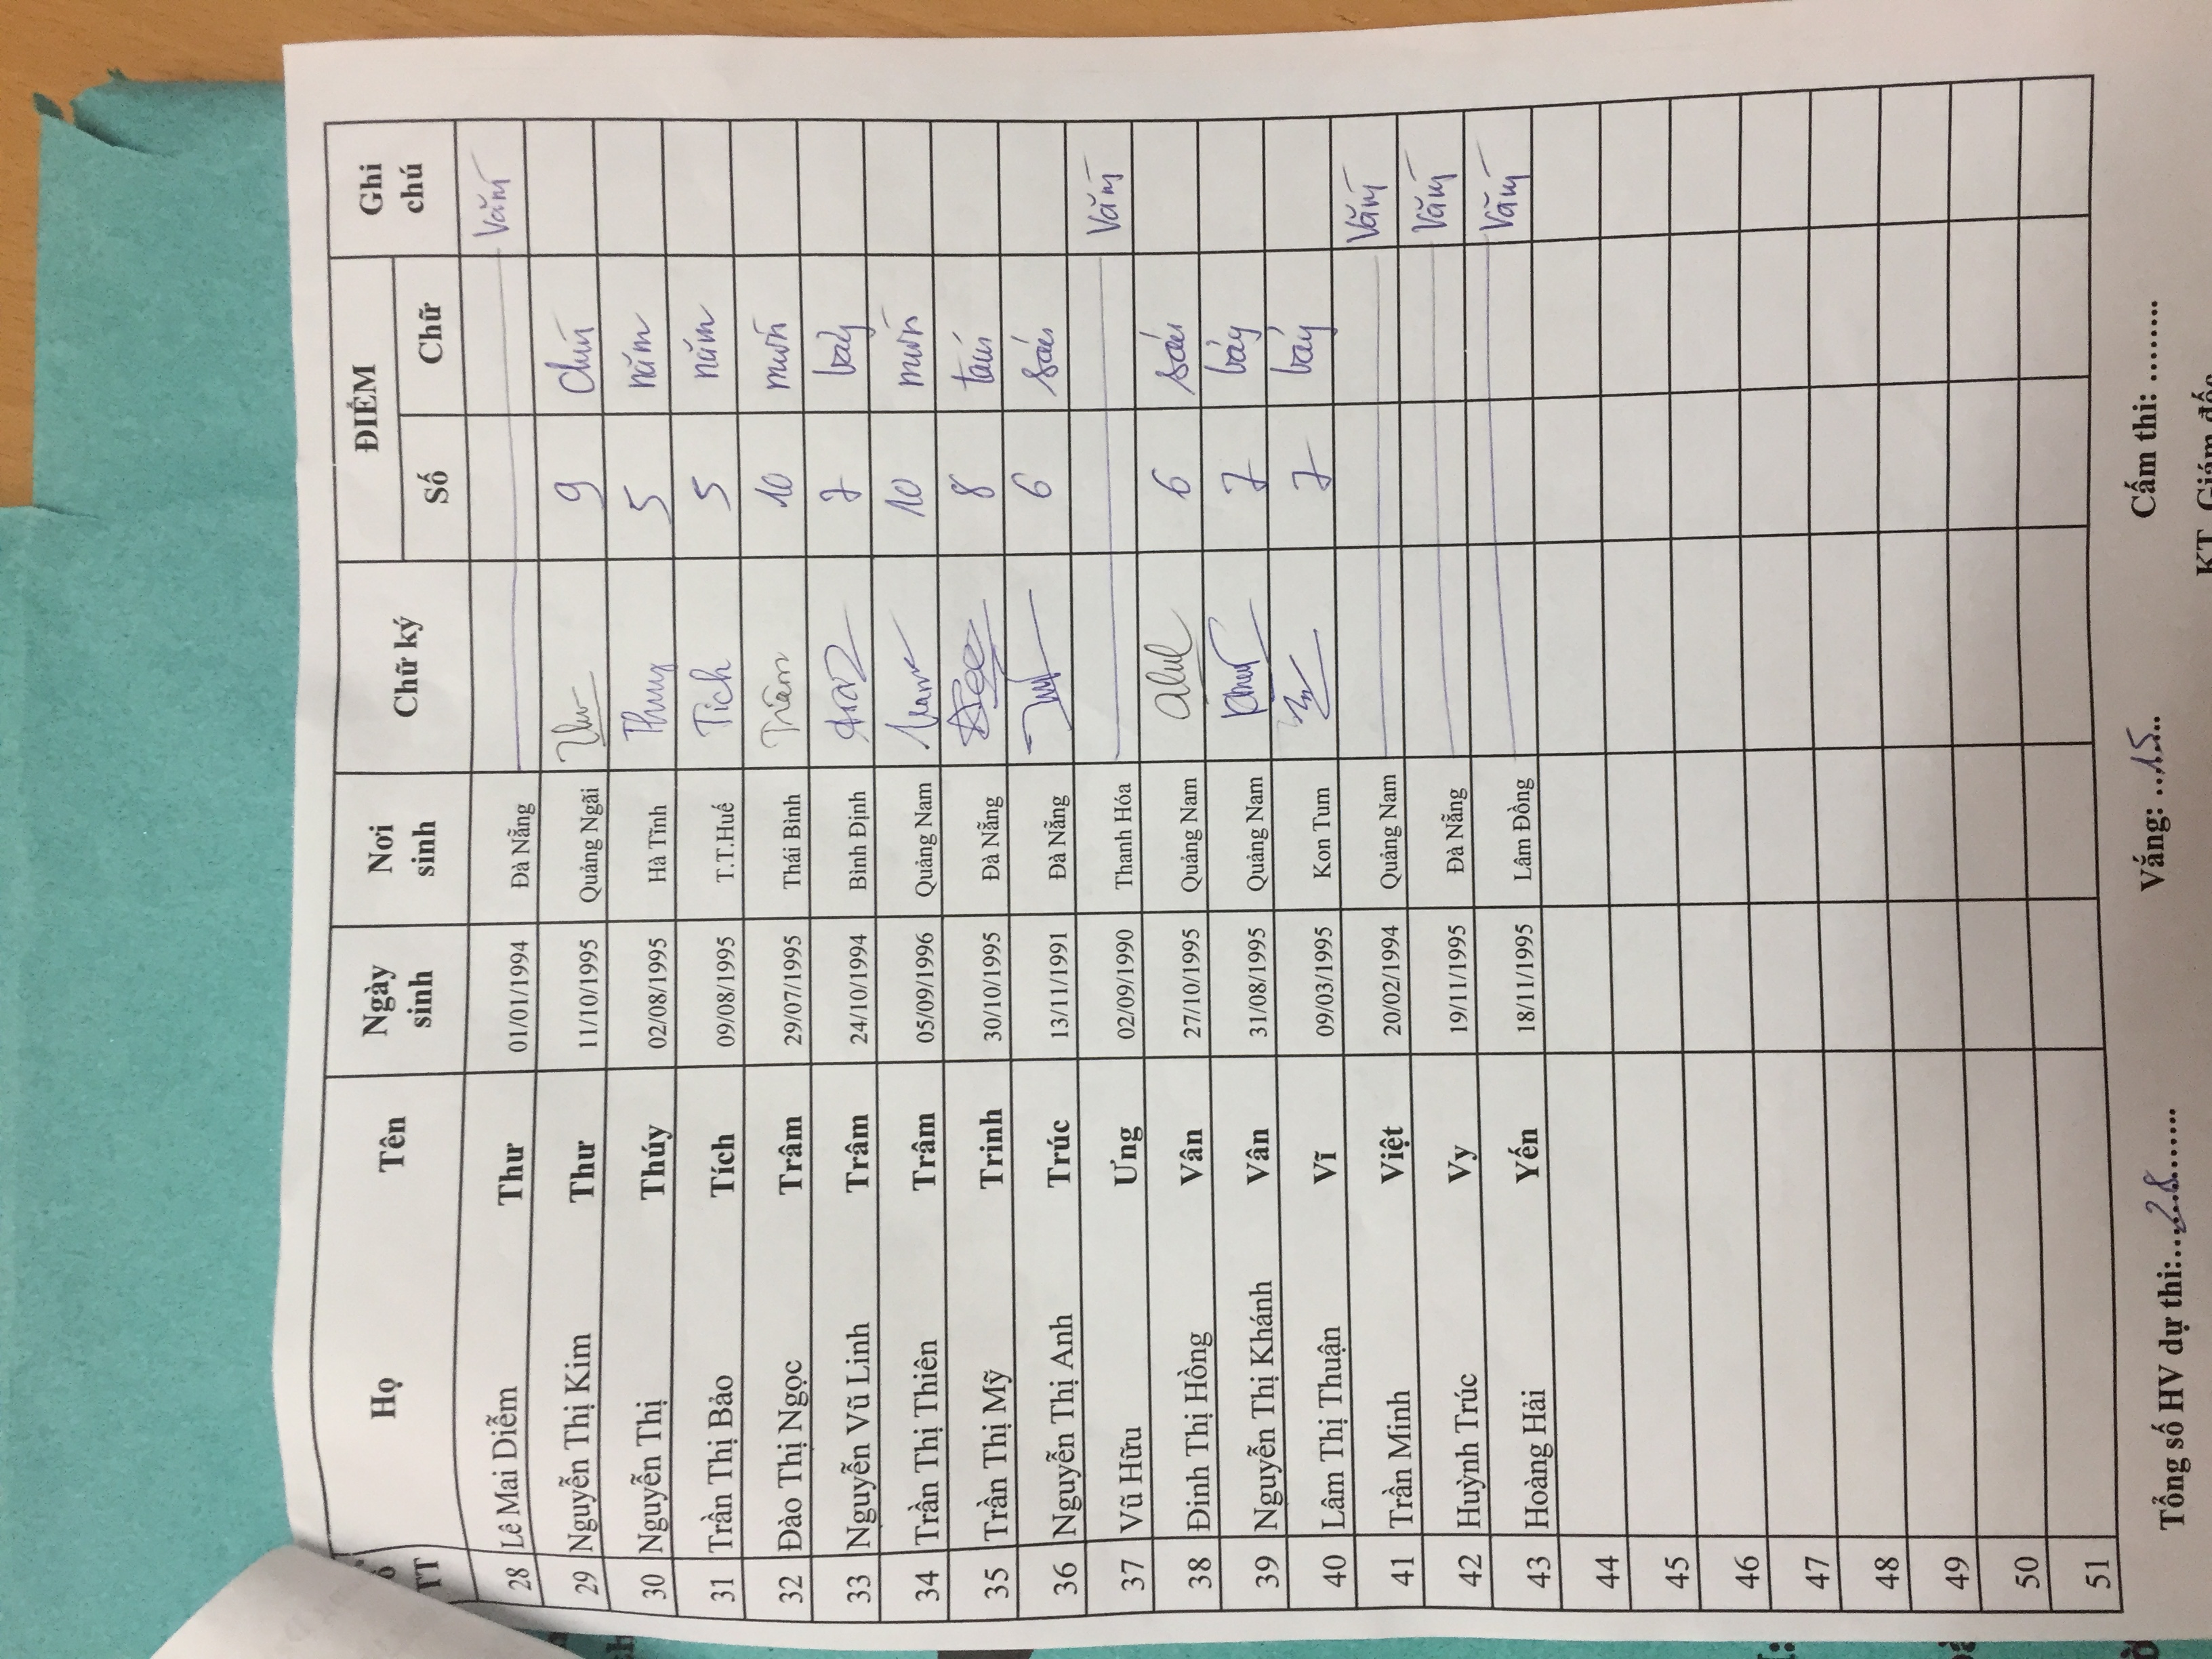 TT Họ Tên Ngày sinh Nơi sinh Chữ ký ĐIỂM Số Chữ Ghi chú
28 Lê Mai Diễm Thư 01/01/1994 Đà Nẵng Vắng
29 Nguyễn Thị Kim Thư 11/10/1995 Quảng Ngãi Thư 9 chín
30 Nguyễn Thị Thúy 02/08/1995 Hà Tĩnh Thuy 5 năm
31 Trần Thị Bảo Tích 09/08/1995 T.T.Huế Tich 5 năm
32 Đào Thị Ngọc Trâm 29/07/1995 Thái Bình Trâm 10 mười
33 Nguyễn Vũ Linh Trâm 24/10/1994 Bình Định 7 bảy
34 Trần Thị Thiên Trâm 05/09/1996 Quảng Nam 10 mười
35 Trần Thị Mỹ Trinh 30/10/1995 Đà Nẵng 8 tám
36 Nguyễn Thị Anh Trúc 13/11/1991 Đà Nẵng 6 sáu
37 Vũ Hữu Ưng 02/09/1990 Thanh Hóa Vắng
38 Đinh Thị Hồng Vân 27/10/1995 Quảng Nam 6 sáu
39 Nguyễn Thị Khánh Vân 31/08/1995 Quảng Nam 7 bảy
40 Lâm Thị Thuận Vĩ 09/03/1995 Kon Tum 7 bảy
41 Trần Minh Việt 20/02/1994 Quảng Nam Vắng
42 Huỳnh Trúc Vy 19/11/1995 Đà Nẵng Vắng
43 Hoàng Hải Yến 18/11/1995 Lâm Đồng Vắng
44
45
46
47
48
49
50
51
Tổng số HV dự thi: 28 Vắng: 15 Cấm thi: ........
KT. Giám đốc